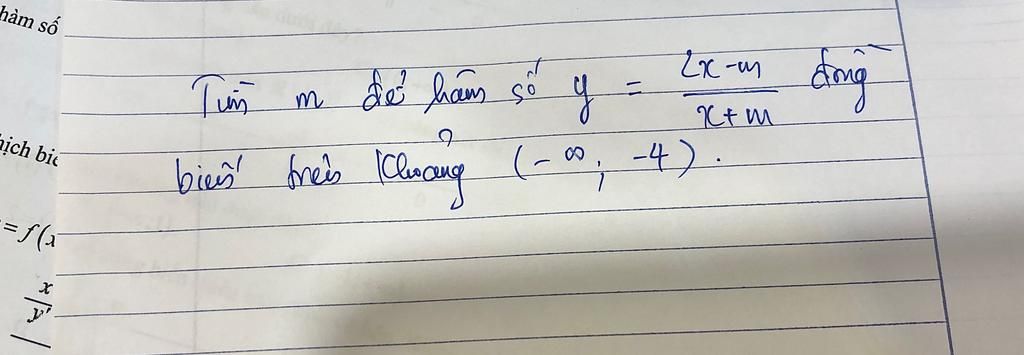 hàm số
Tìm m để hàm số y = \frac{2x-m}{x+m} đồng
biến trên khoảng (-∞; -4).
hịch biế
= f(x
\frac{x}{y'}